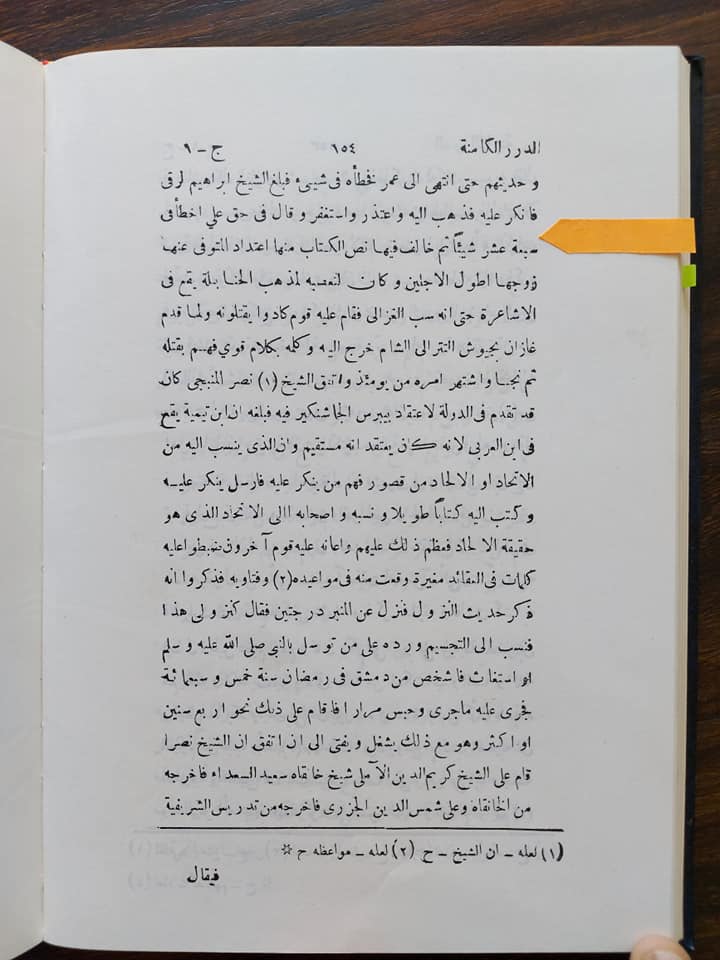 الدرر الكامنة ١٥٤ ج – ١
و حديثهم حتى انتهى الى عمر فخطأه فى شيىء فبلغ الشيخ ابراهيم الرقى
فانكر عليه فذهب اليه واعتذر واستغفر و قال فى حق علي اخطأ فى
سبعة عشر شيئاً ثم خالف فيها نص الكتاب منها اعتداد المتوفى عنها
زوجها اطول الاجلين و كان لتعصبه لمذهب الحنابلة يقع فى
الاشاعرة حتى انه سب الغزالى فقام عليه قوم كادوا يقتلونه ولما قدم
غازان بجيوش التتر الى الشام خرج اليه و كلمه بكلام قوي فهم بقتله
ثم نجا واشتهر امره من يومئذ واتفق الشيخ (١) نصر المنبجى كان
قد تقدم فى الدولة لاعتقاد بيبرس الجاشنكير فيه فبلغه ان ابن تيمية يقع
فى ابن العربى لانه كان يعتقد انه مستقيم وان الذى ينسب اليه من
الاتحاد او الالحاد من قصور فهم من ينكر عليه فارسل ينكر عليه
و كتب اليه كتاباً طويلا و نسبه و اصحابه الى الاتحاد الذى هو
حقيقة الالحاد فعظم ذلك عليهم واعانه عليه قوم آخرون ضبطوا عليه
كلمات فى العقائد مغيرة وقعت منه فى مواعيده (٢) وفتاويه فذكروا انه
ذكر حديث النزول فنزل عن المنبر درجتين فقال كنزولى هذا
فنسب الى التجسيم ورده على من توسل بالنبى صلى الله عليه و سلم
او استغاث فاشخص من دمشق فى رمضان سنة خمس و سبعمائة
فجرى عليه ماجرى وحبس مرارا فاقام على ذلك نحو اربع سنين
او اكثر وهو مع ذلك يشغل و يفتى الى ان اتفق ان الشيخ نصرا
قام على الشيخ كريم الدين الآملى شيخ خانقاه سعيد السعداء فاخرجه
من الخانقاه وعلى شمس الدين الجزرى فاخرجه من تدريس الشريفية
(١) لعله – ان الشيخ – ح (٢) لعله – مواعظه ح *
فيقال